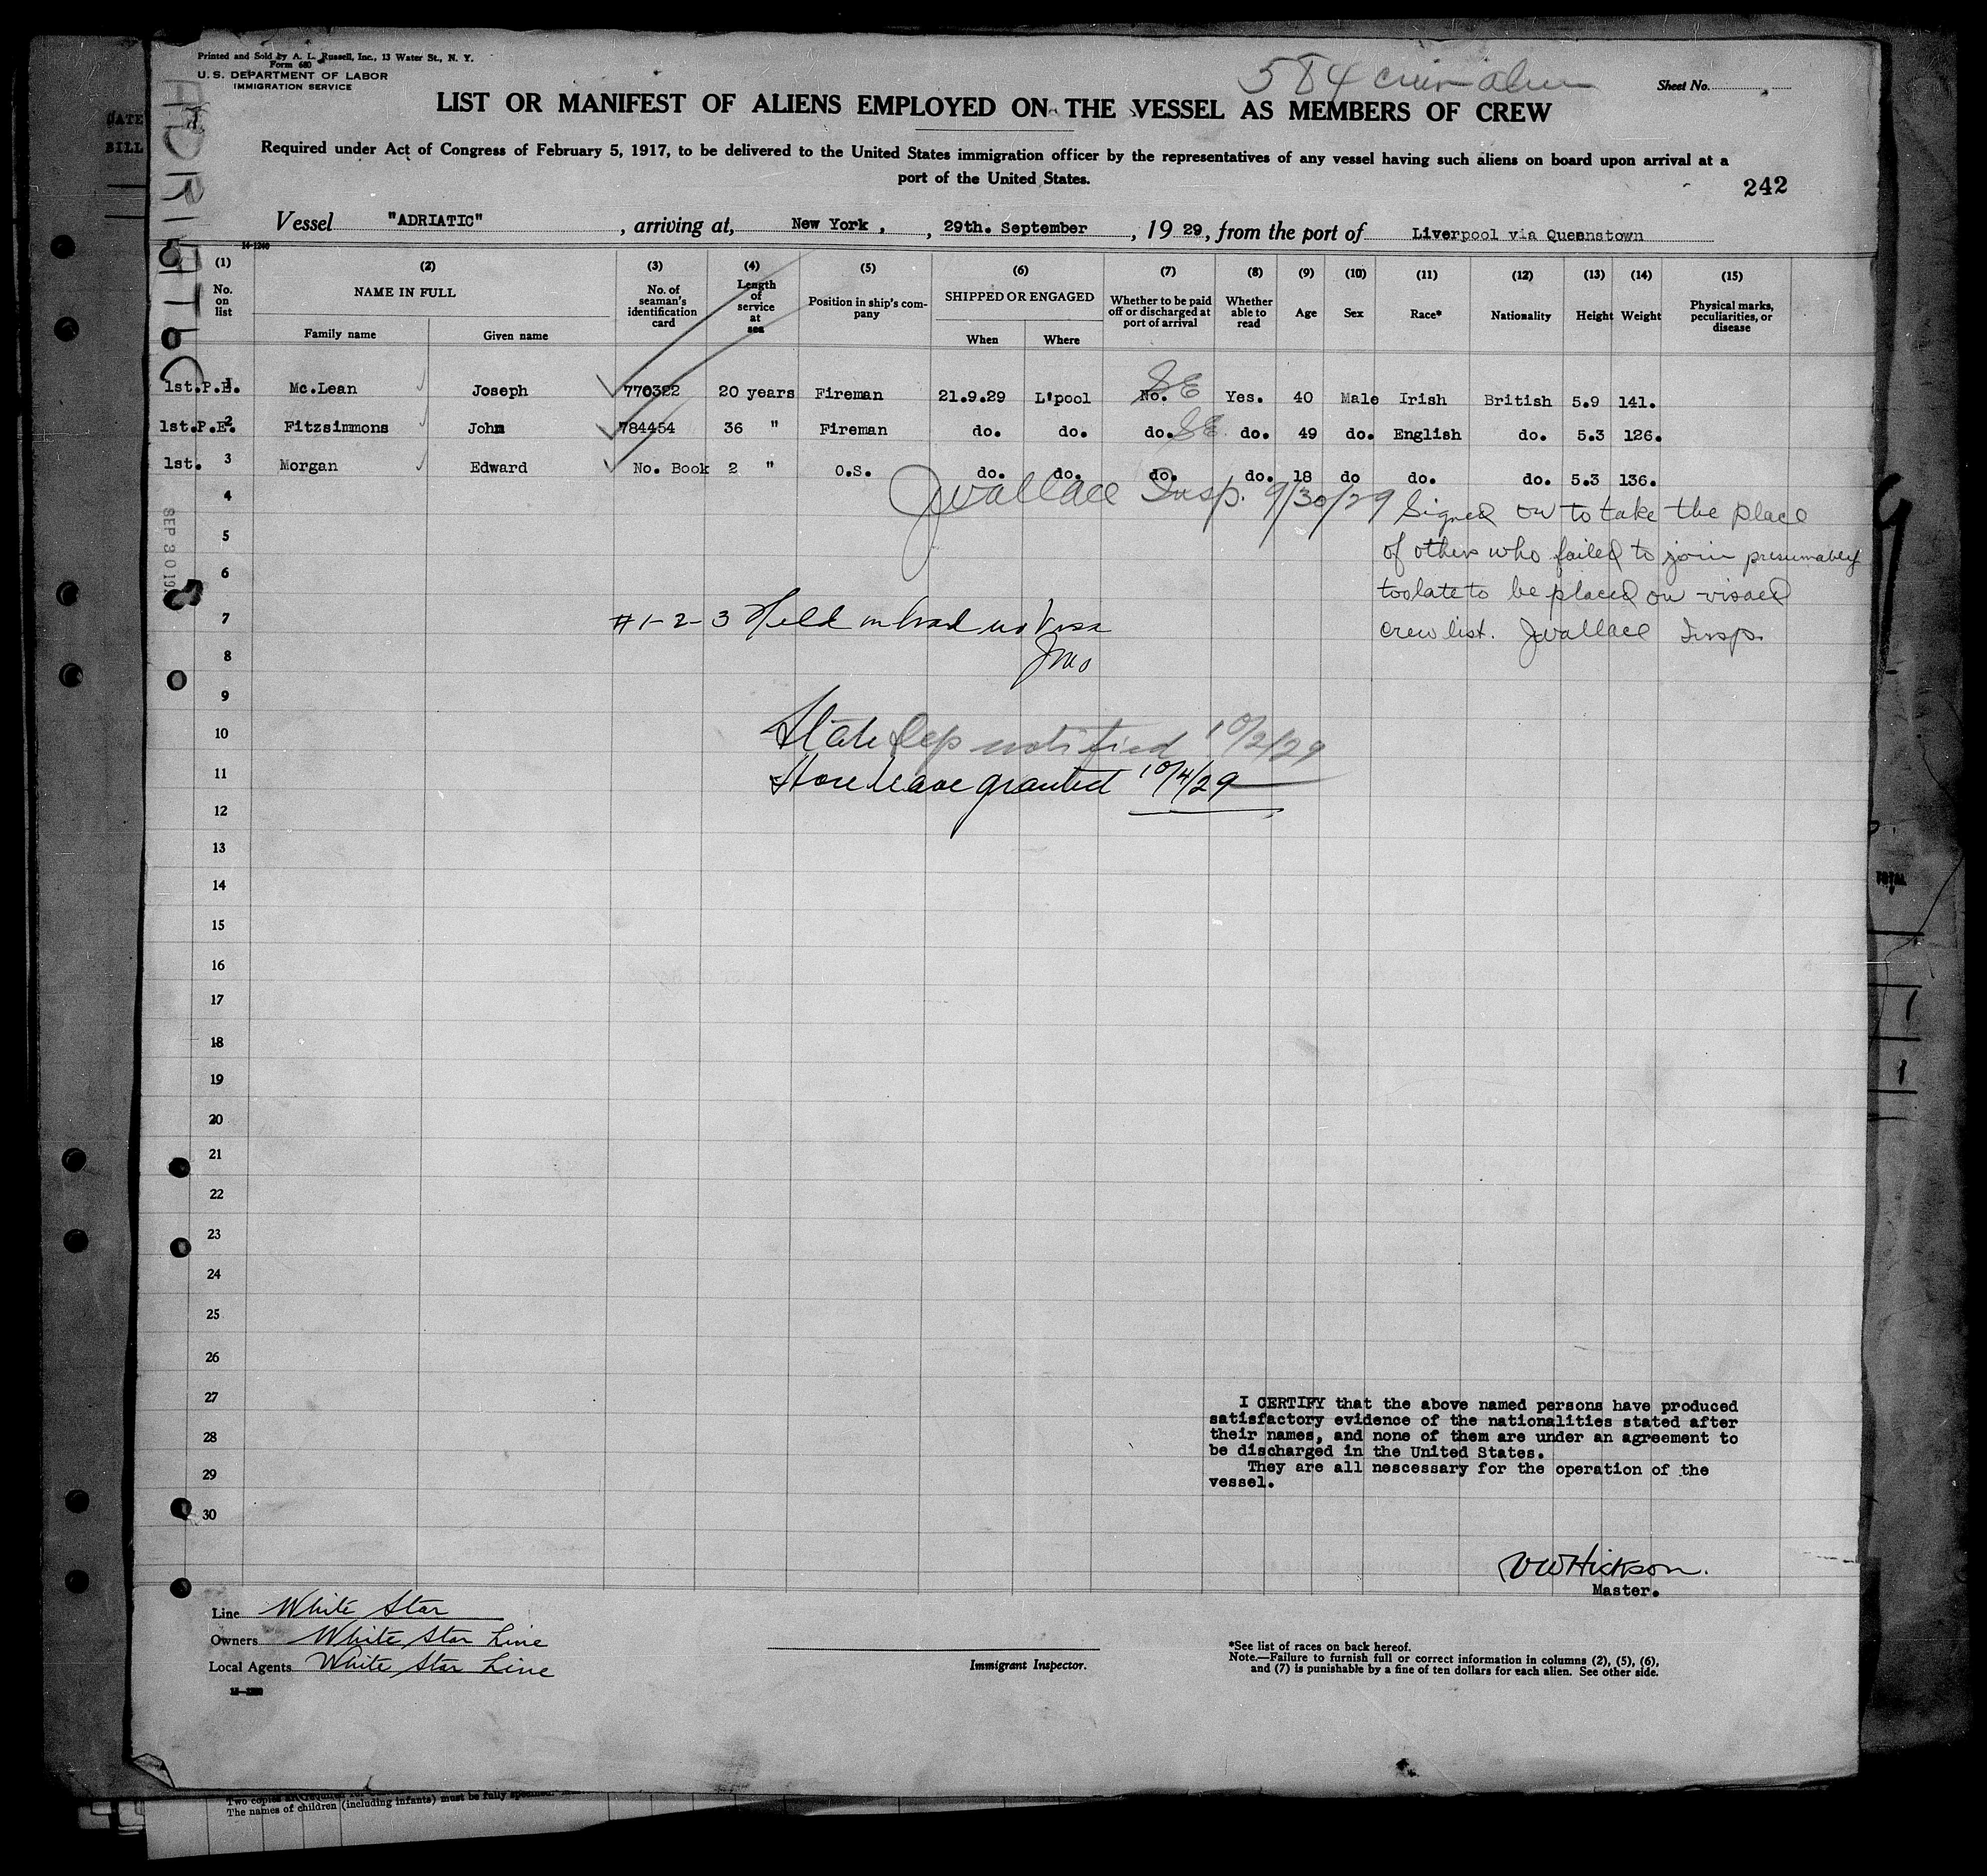 Printed and Sold by A. L. Russell, Inc., 13 Water St., N. Y.
Form 680
U. S. DEPARTMENT OF LABOR
IMMIGRATION SERVICE
584 crew alien
Sheet No.
LIST OR MANIFEST OF ALIENS EMPLOYED ON THE VESSEL AS MEMBERS OF CREW
Required under Act of Congress of February 5, 1917, to be delivered to the United States immigration officer by the representatives of any vessel having such aliens on board upon arrival at a
port of the United States.
242
ADRIATIC
DATE
BILL
Vessel "ADRIATIC", arriving at, New York, , 29th. September, 19 29, from the port of Liverpool via Queenstown
14-1240
(1) (2) (3) (4) (5) (6) (7) (8) (9) (10) (11) (12) (13) (14) (15)
No. on list NAME IN FULL No. of seaman's identification card Length of service at sea Position in ship's company SHIPPED OR ENGAGED Whether to be paid off or discharged at port of arrival Whether able to read Age Sex Race* Nationality Height Weight Physical marks, peculiarities, or disease
Family name Given name When Where
1st.P.E. 1 Mc.Lean Joseph 770322 20 years Fireman 21.9.29 L'pool No. SE Yes. 40 Male Irish British 5.9 141.
1st.P.E. 2 Fitzsimmons John 784454 36 " Fireman do. do. do. SE do. 49 do. English do. 5.3 126.
1st. 3 Morgan Edward No. Book 2 " O.S. do. do. do. do. 18 do do. do. 5.3 136.
JWallace Insp. 9/30/29
Signed on to take the place
of others who failed to join presumably
too late to be placed on visaed
crew list. JWallace Insp.
SEP 30 19
#1-2-3 Held on board no Visa
State Dep notified 10/2/29
Shore leave granted 10/4/29
4
5
6
7
8
9
10
11
12
13
14
15
16
17
18
19
20
21
22
23
24
25
26
27
28
29
30
TOTAL
1
1
I CERTIFY that the above named persons have produced
satisfactory evidence of the nationalities stated after
their names, and none of them are under an agreement to
be discharged in the United States.
They are all nescessary for the operation of the
vessel.
VWHickson.
Master.
Line White Star
Owners White Star Line
Local Agents White Star Line
Immigrant Inspector.
*See list of races on back hereof.
Note.—Failure to furnish full or correct information in columns (2), (5), (6),
and (7) is punishable by a fine of ten dollars for each alien. See other side.
The names of children (including infants) must be fully